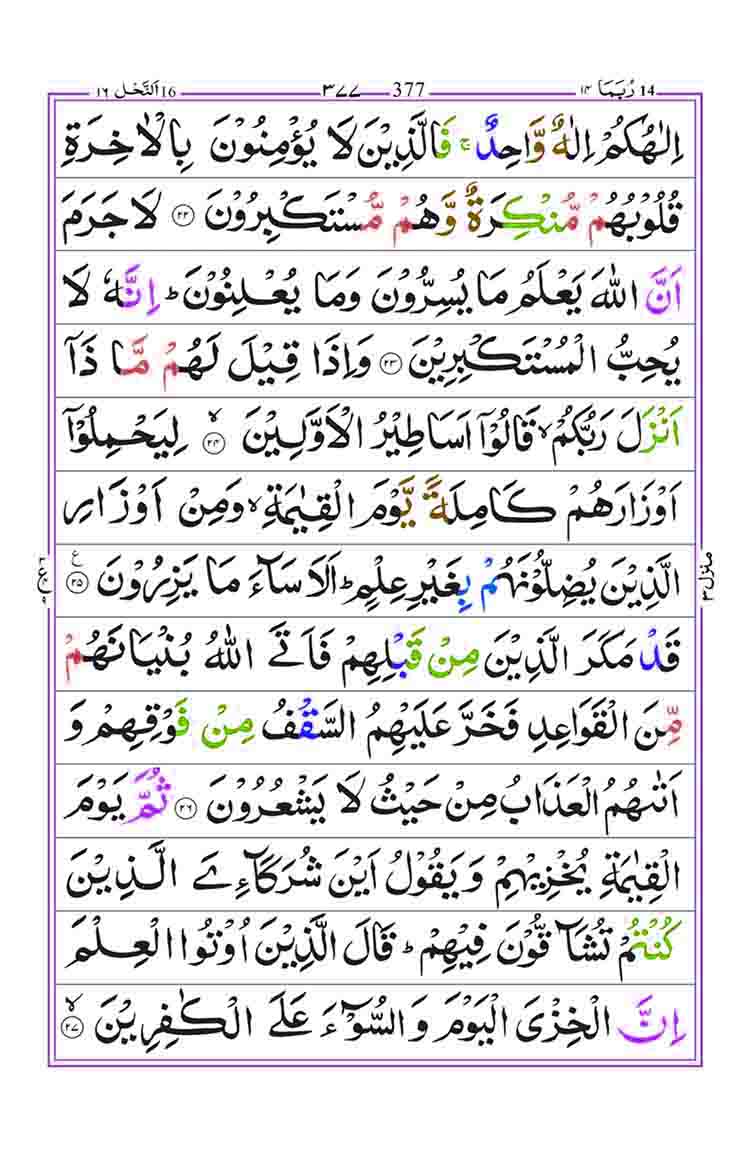 14 رُبَمَا ۱۴ 377 ۳۷۷ 16 اَلنَّحْل ۱۶
اِلٰهُكُمْ اِلٰهٌ وَّاحِدٌ ۚ فَالَّذِيْنَ لَا يُؤْمِنُوْنَ بِالْاٰخِرَةِ
قُلُوْبُهُمْ مُّنْكِرَةٌ وَّهُمْ مُّسْتَكْبِرُوْنَ ۟۲۲ لَا جَرَمَ
اَنَّ اللّٰهَ يَعْلَمُ مَا يُسِرُّوْنَ وَمَا يُعْلِنُوْنَ ؕ اِنَّهٗ لَا
يُحِبُّ الْمُسْتَكْبِرِيْنَ ۟۲۳ وَاِذَا قِيْلَ لَهُمْ مَّا ذَاۤ
اَنْزَلَ رَبُّكُمْ ۙ قَالُوْۤا اَسَاطِيْرُ الْاَوَّلِيْنَ ۟ۙ۲۴ لِيَحْمِلُوْۤا
اَوْزَارَهُمْ كَامِلَةً يَّوْمَ الْقِيٰمَةِ ۙ وَمِنْ اَوْزَارِ
الَّذِيْنَ يُضِلُّوْنَهُمْ بِغَيْرِ عِلْمٍ ؕ اَلَا سَآءَ مَا يَزِرُوْنَ ۟۲۵ ع
منزل۳
قَدْ مَكَرَ الَّذِيْنَ مِنْ قَبْلِهِمْ فَاَتَى اللّٰهُ بُنْيَانَهُمْ
مِّنَ الْقَوَاعِدِ فَخَرَّ عَلَيْهِمُ السَّقْفُ مِنْ فَوْقِهِمْ وَ
اَتٰىهُمُ الْعَذَابُ مِنْ حَيْثُ لَا يَشْعُرُوْنَ ۟۲۶ ثُمَّ يَوْمَ
الْقِيٰمَةِ يُخْزِيْهِمْ وَيَقُوْلُ اَيْنَ شُرَكَآءِيَ الَّذِيْنَ
كُنْتُمْ تُشَآ قُّوْنَ فِيْهِمْ ؕ قَالَ الَّذِيْنَ اُوْتُوا الْعِلْمَ
اِنَّ الْخِزْيَ الْيَوْمَ وَالسُّوْٓءَ عَلَى الْكٰفِرِيْنَ ۟ۙ۲۷